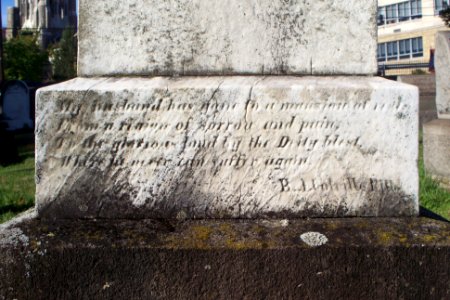 My husband has gone to a mansion of rest,
From a region of sorrow and pain,
To the glorious land by the Deity blest,
Where he never can suffer again.
B. J.